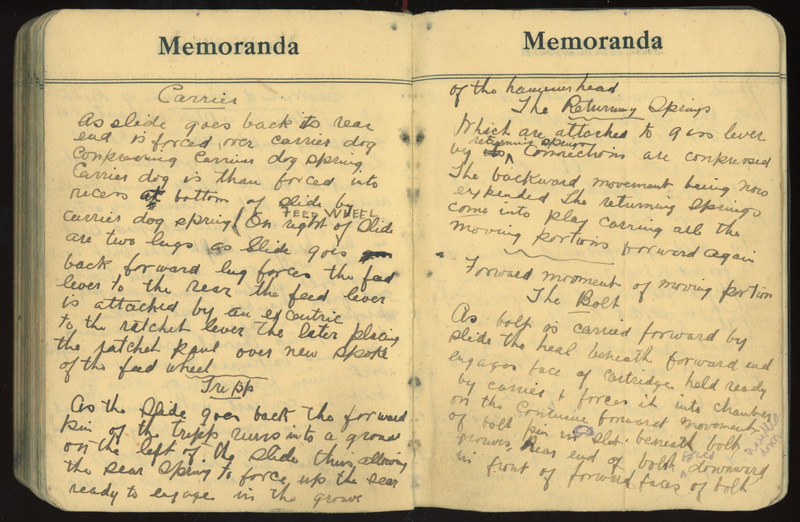 Memoranda
Carrier
As slide goes back to rear
end is forced over carrier dog
Compressing Carrier dog spring
Carrier dog is than forced into
recess at bottom of slide by
carrier dog spring (On right of Slide
FEED WHEEL
are two lugs as Slide goes
back forward lug forces the feed
lever to the rear the feed lever
is attached by an excentric
to the ratchet lever the later placing
the ratchet pawl over new spoke
of the feed wheel
Tripp
As the Slide goes back the forward
pin of the tripp runs into a groove
on the left of the slide thus allowing
the sear spring to force up the sear
ready to engage in the groove
Memoranda
of the hammer head
The Returning Springs
Which are attached to gass lever
returning spring
by Connections are compressed
The backward movement being now
expended The returning Springs
come into play carring all the
moving portions forward again
Forward movment of moving portion
The Bolt
As bolt is carried forward by
slide the heal beneath forward end
engages face of cartridge held ready
by carrier & forces it into chamber
on the Continue forward movement
of bolt pin in slot beneath bolt
moves rear end of bolt downward
in front of forward faces of bolt